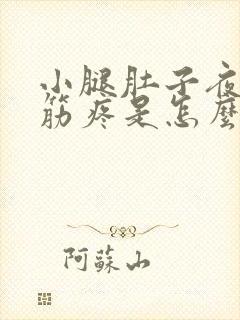 小腿肚子夜
筋疼是怎麼
阿蘇山